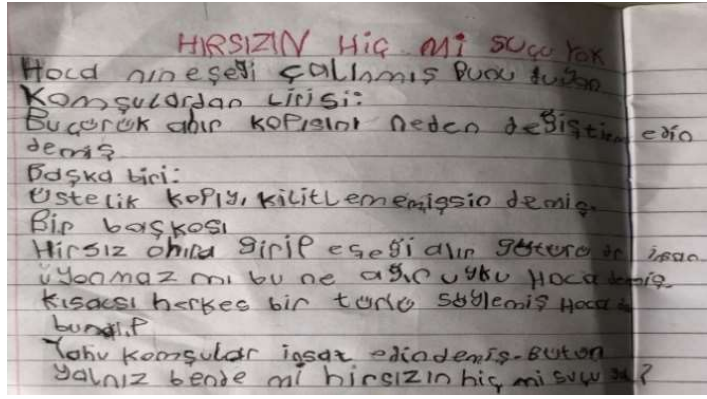 HIRSIZIN HİÇ Mİ SUÇU YOK
Hoca nın eşeği çalınmış bunu duyan
Komşulardan birisi:
Bu çürük ahır kapısını neden değiştirm edin
demiş
Başka biri:
Üstelik kapıyı kilitlememişsin demiş.
Bir başkası
Hirsiz ahıra girip eşeği alıp götürür de insan
uyanmaz mı bu ne ağır uyku Hoca demiş.
Kısacsı herkes bir türlü söylemiş Hoca da
bunalıp
Yahu komşular insaf edin demiş-Bütün
yalnız bende mi hirsizın hiç mi suçu yok?